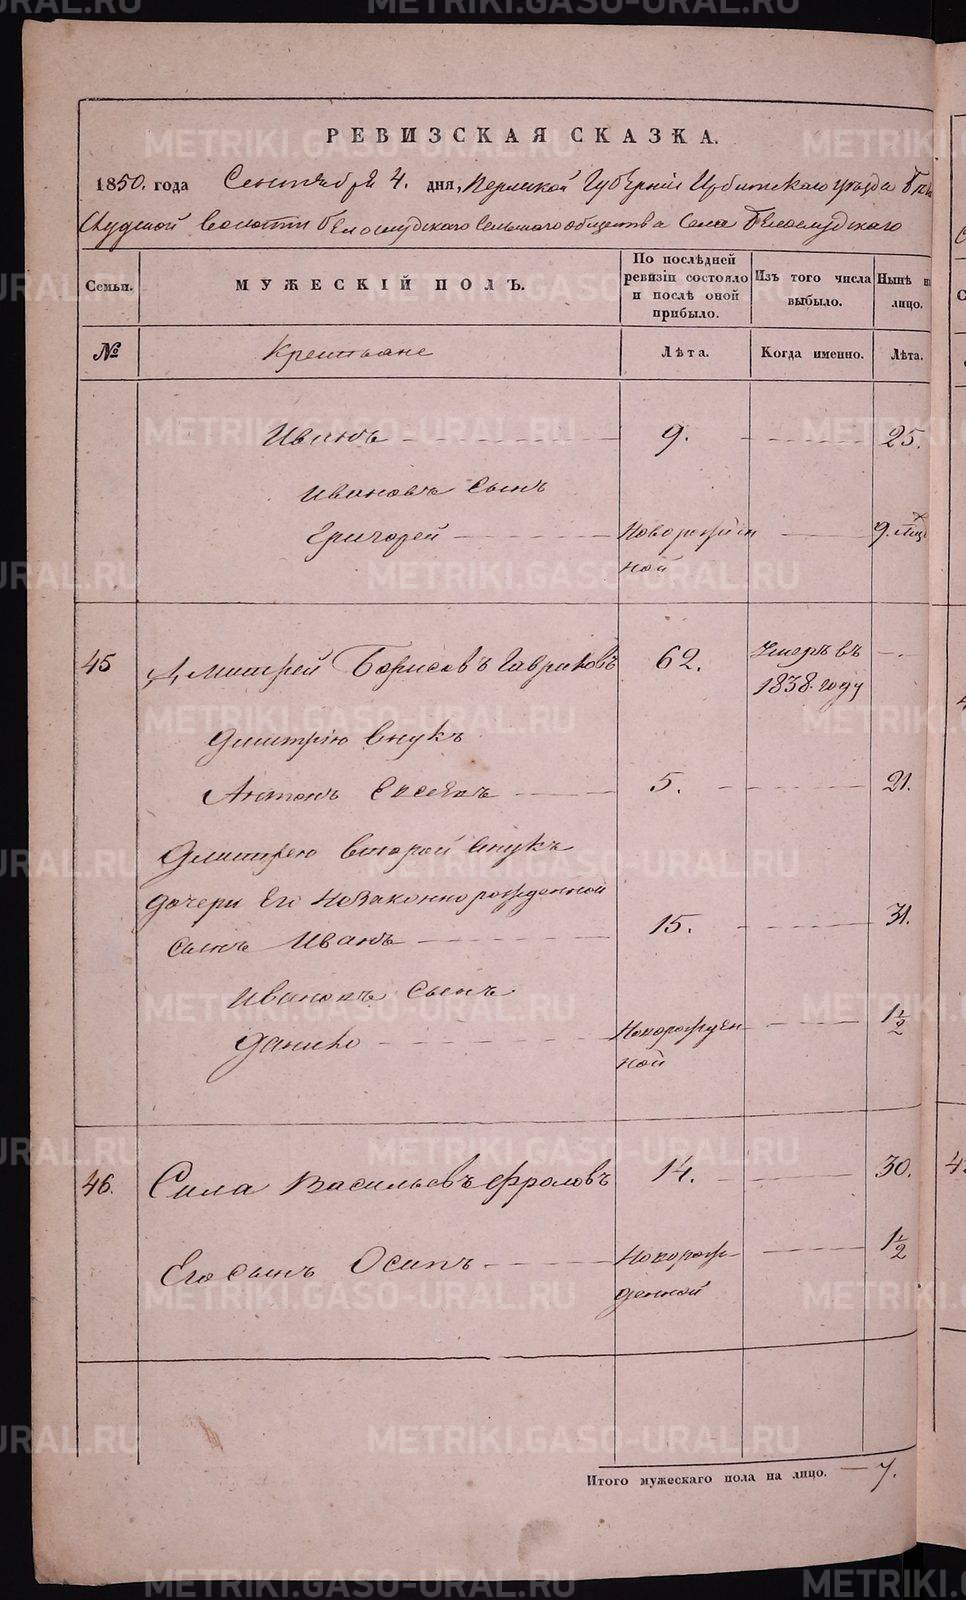 РЕВИЗСКАЯ СКАЗКА.
1850. года Сентября 4. дня, Пермской Губерніи Ирбитскаго уѣзда
Слудской Волости Бѣлослудскаго Сельскаго общества Села Бѣлослудскаго
Семьи. МУЖЕСКІЙ ПОЛЪ. По послѣдней ревизіи состояло и послѣ оной прибыло. Изъ того числа выбыло. Нынѣ на лицо.
№ Крестьяне Лѣта. Когда именно. Лѣта.
Иванъ 9. 25.
Ивановъ Сынъ
Григорей Новорожден 9.
ной
45 Дмитрей Борисовъ Гавриловъ 62. Умеръ въ
1838. году
Дмитрію внукъ
Антонъ Евсеевъ 5. 21.
Дмитрею второй внукъ
дочери Его Незаконнорожденной
сынъ Иванъ 15. 31.
Ивановъ Сынъ
Данило Новорожден 1½
ной
46. Сила Васильевъ Фроловъ 14. 30.
Его сынъ Осипъ Новорож 1½
денной
Итого мужескаго пола на лицо. 7.
METRIKI.GASO-URAL.RU